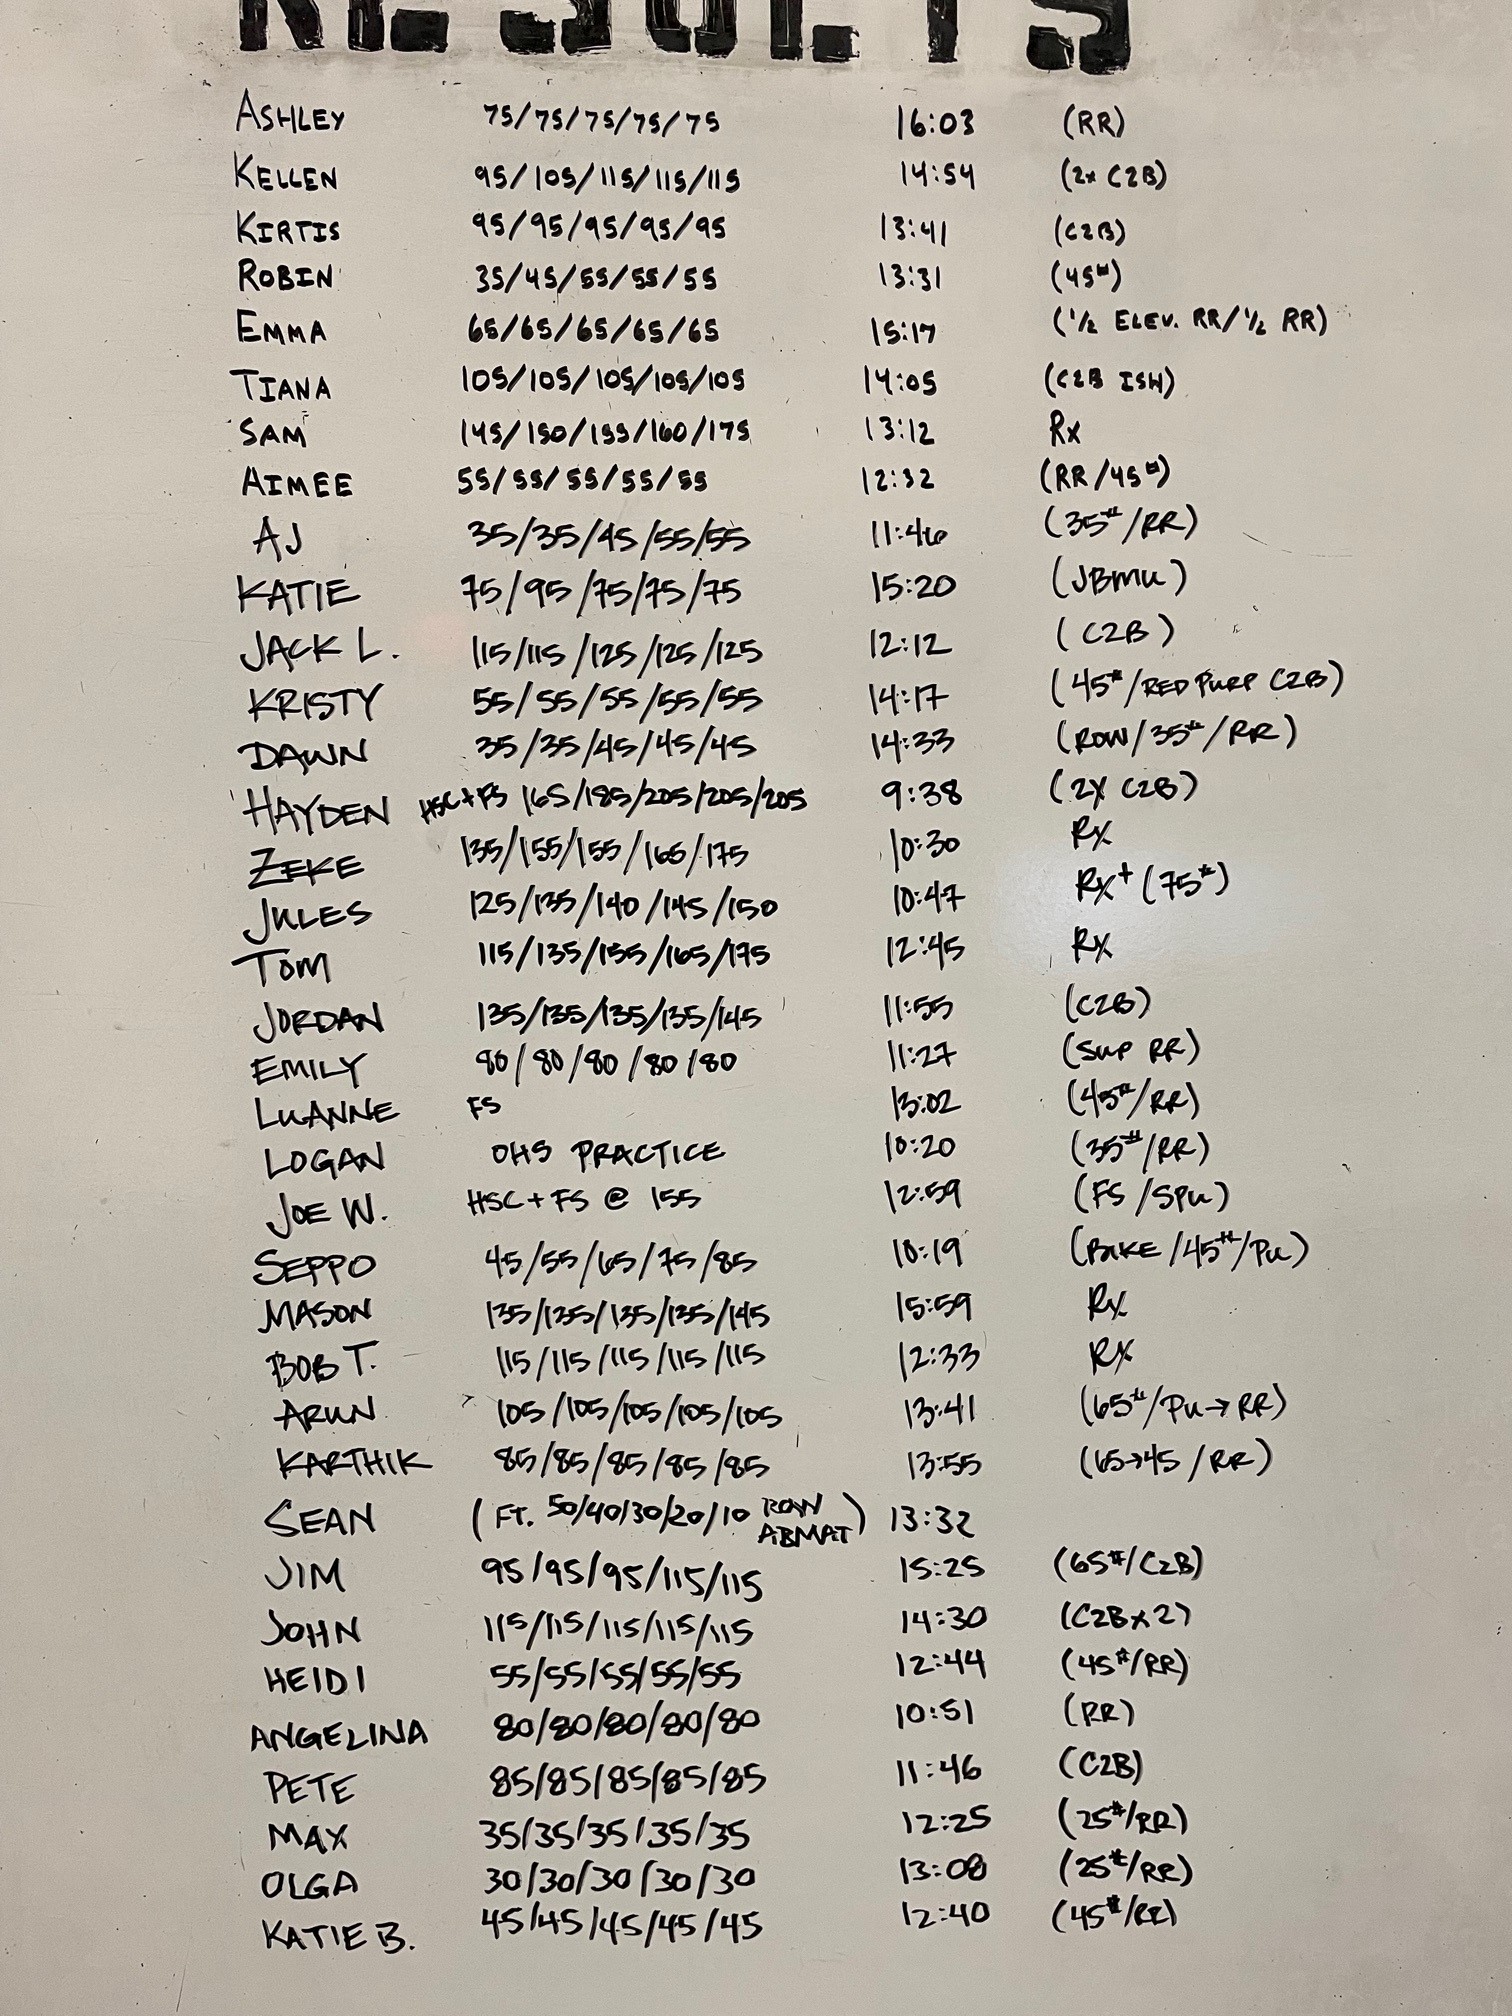 RESULTS
ASHLEY 75/75/75/75/75 16:03 (RR)
KELLEN 95/105/115/115/115 14:54 (2x C2B)
KIRTIS 95/95/95/95/95 13:41 (C2B)
ROBIN 35/45/55/55/55 13:31 (45#)
EMMA 65/65/65/65/65 15:17 (1/2 ELEV. RR/1/2 RR)
TIANA 105/105/105/105/105 14:05 (C2B ISH)
SAM 145/150/155/160/175 13:12 Rx
AIMEE 55/55/55/55/55 12:32 (RR/45#)
AJ 35/35/45/55/55 11:46 (35#/RR)
KATIE 75/95/75/75/75 15:20 (JBMU)
JACK L. 115/115/125/125/125 12:12 (C2B)
KRISTY 55/55/55/55/55 14:17 (45#/RED PURP C2B)
DAWN 35/35/45/45/45 14:33 (ROW/35#/RR)
HAYDEN HSC+FS 165/185/205/205/205 9:38 (2X C2B)
ZEKE 135/155/155/165/175 10:30 Rx
JULES 125/135/140/145/150 10:47 Rx+ (75#)
TOM 115/135/155/165/175 12:45 Rx
JORDAN 135/135/135/135/145 11:55 (C2B)
EMILY 80/80/80/80/80 11:27 (SUP RR)
LUANNE FS 13:02 (45#/RR)
LOGAN OHS PRACTICE 10:20 (35#/RR)
JOE W. HSC+FS @ 155 12:59 (FS/SPU)
SEPPO 45/55/65/75/85 10:19 (BIKE/45#/PU)
MASON 135/135/135/135/145 15:59 Rx
BOB T. 115/115/115/115/115 12:33 Rx
ARUN 105/105/105/105/105 13:41 (65#/PU→RR)
KARTHIK 85/85/85/85/85 13:55 (65→45/RR)
SEAN (FT. 50/40/30/20/10 ROW ABMAT) 13:32
JIM 95/95/95/115/115 15:25 (65#/C2B)
JOHN 115/115/115/115/115 14:30 (C2B x 2)
HEIDI 55/55/55/55/55 12:44 (45#/RR)
ANGELINA 80/80/80/80/80 10:51 (RR)
PETE 85/85/85/85/85 11:46 (C2B)
MAX 35/35/35/35/35 12:25 (25#/RR)
OLGA 30/30/30/30/30 13:08 (25#/RR)
KATIE B. 45/45/45/45/45 12:40 (45#/RR)